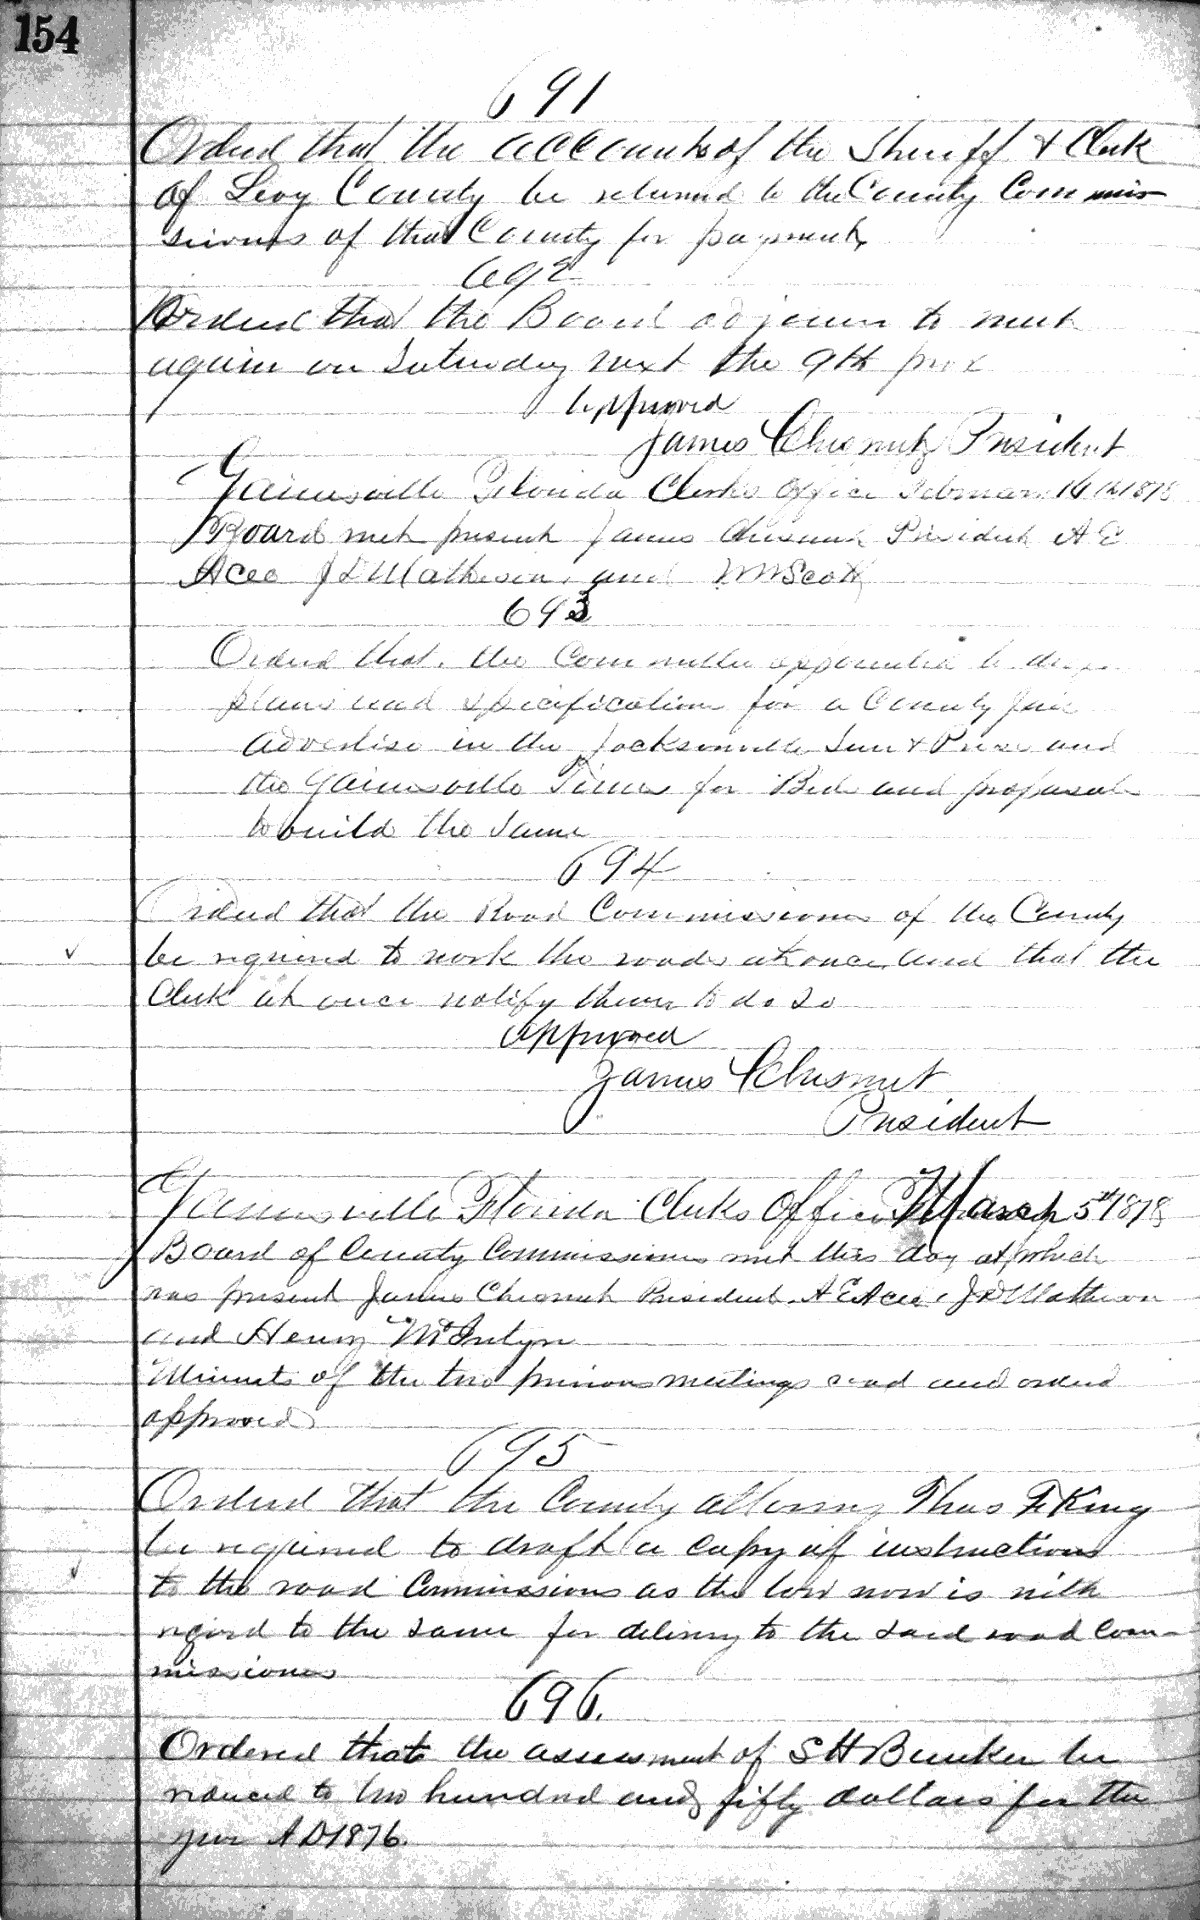 154
691
Orderd that the accounts of the Sheriff & Clerk
of Levy County be returned to the County Commis
sioners of that County for payment
692
Orderd that the Board adjourn to meet
again on Saturday next the 9th prox
approved
James Chesnut President
Gainesville Florida Clerks Office February 16th 1878
Board met present James Chesnut President A E
Aceo J D Matheson and Wm Scott
693
Orderd that the Committee appointed to draw
plans and specification for a County Jail
advertise in the Jacksonville Sun & Press and
the Gainesville Times for Bids and proposals
to build the same
694
Orderd that the Road Commissioners of the County
be required to work the roads at once and that the
Clerk at once notify them to do so
approved
James Chesnut
President
Gainesville Florida Clerks Office March 5th 1878
Board of County Commissioners met this day at which
was present James Chesnut President A E Aceo J D Matheson
and Henry McIntyre
Minuets of the two previous meetings read and orderd
approved
695
Orderd that the County attorney Thos F King
be required to draft a copy of instructions
to the road Commissions as the low now is with
regard to the same for delivery to the said road Com-
missioners
696.
Ordered that the assessment of S H Bunker be
reduced to two hundred and fifty dollars for the
year A D 1876.